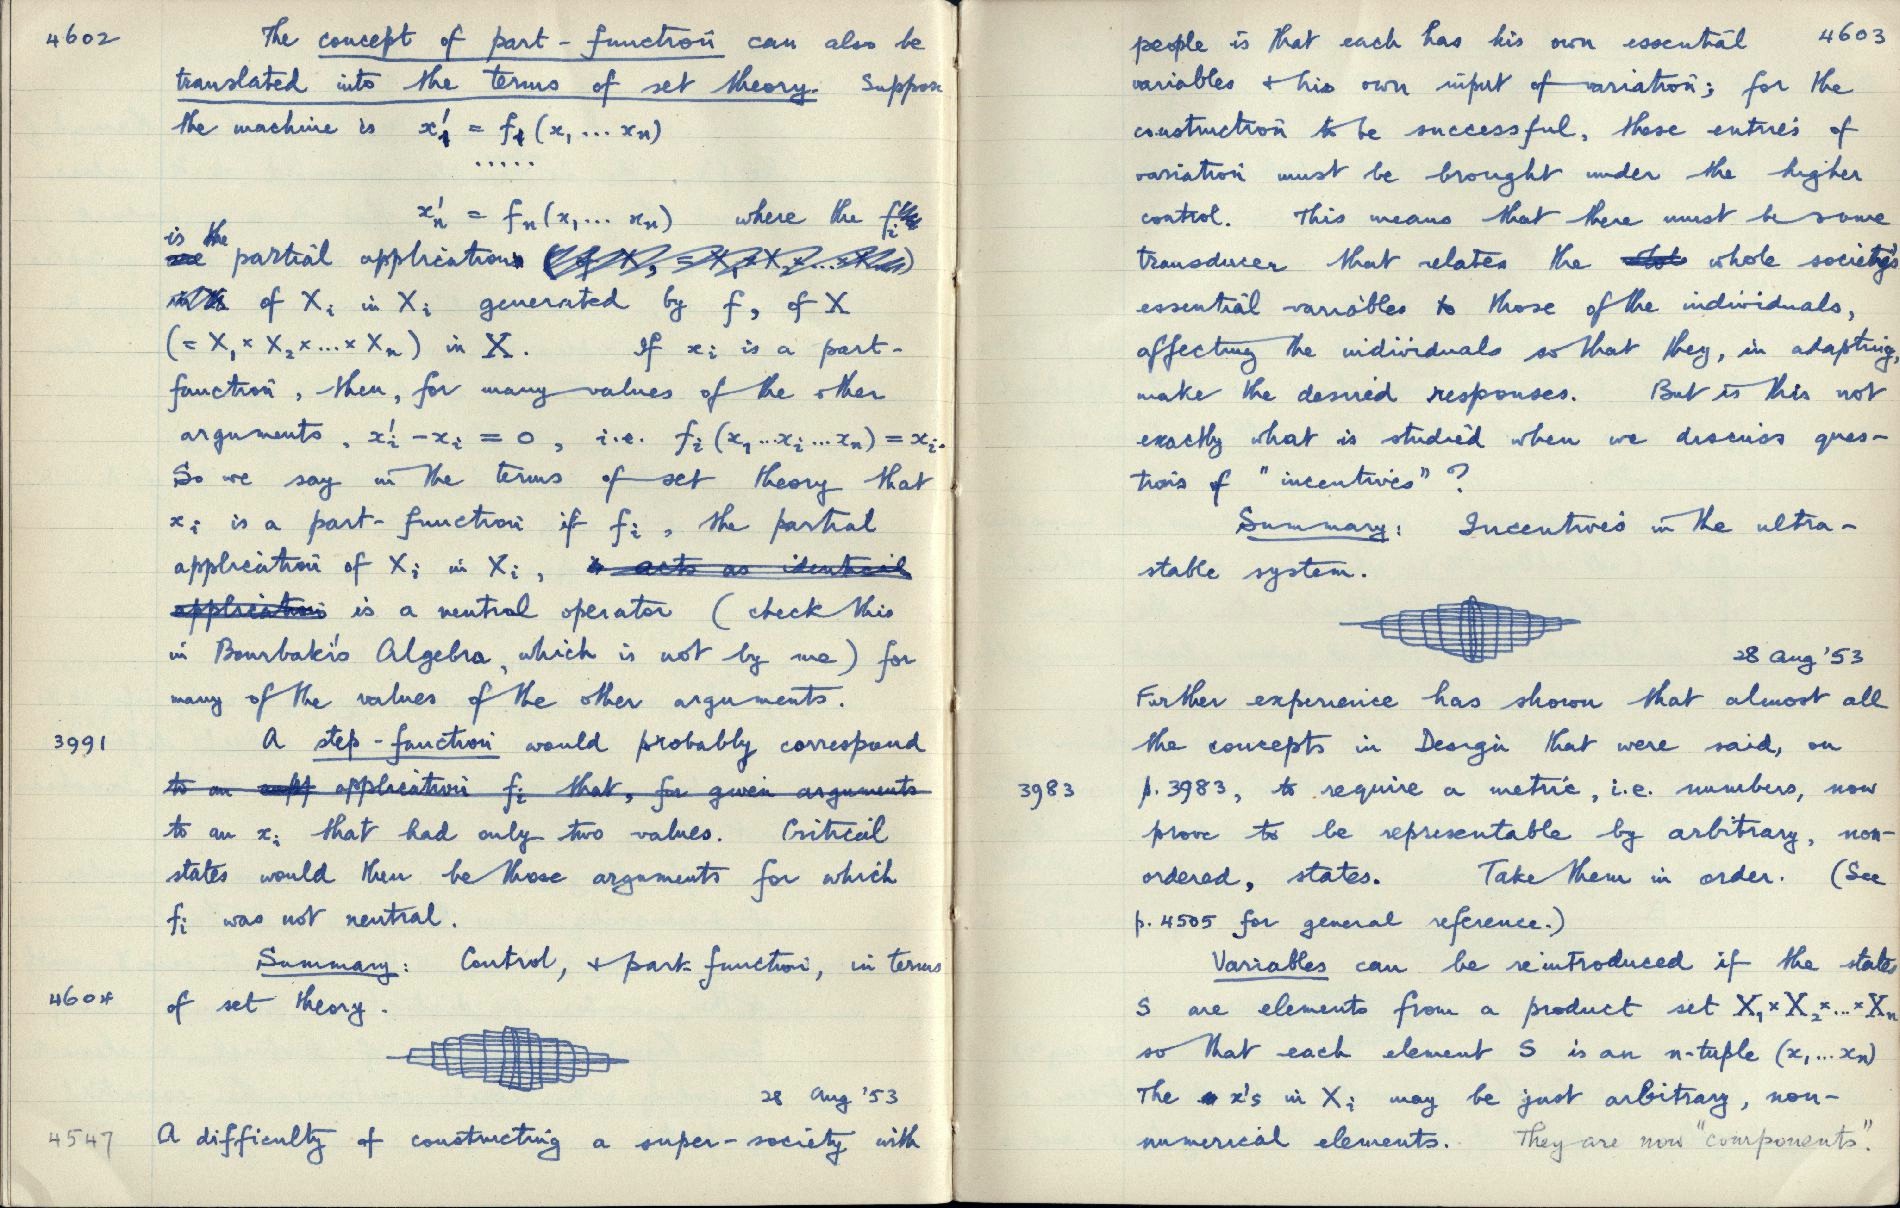 4602 The concept of part-function can also be
translated into the terms of set theory. Suppose
the machine is x₁' = f₁(x₁ ... xₙ)
.....
xₙ' = fₙ(x₁ ... xₙ) where the fᵢ
is the
are partial applications
of Xᵢ in Xᵢ generated by f, of X
(= X₁ × X₂ × ... × Xₙ) in X. If xᵢ is a part-
function, then, for many values of the other
arguments, xᵢ' - xᵢ = 0, i.e. fᵢ(x₁ ... xᵢ ... xₙ) = xᵢ.
So we say in the terms of set theory that
xᵢ is a part-function if fᵢ, the partial
application of Xᵢ in Xᵢ, acts as identical
application is a neutral operator (check this
in Bourbaki's Algebra, which is not by me) for
many of the values of the other arguments.
3991 A step-function would probably correspond
to an application fᵢ that, for given arguments
to an xᵢ that had only two values. Critical
states would then be those arguments for which
fᵢ was not neutral.
Summary: Control, & part-function, in terms
4604 of set theory.
28 Aug '53
4547 A difficulty of constructing a super-society with
4603
people is that each has his own essential
variables & his own input of variation; for the
construction to be successful, these entries of
variation must be brought under the higher
control. This means that there must be some
transducer that relates the whole society's
essential variables to those of the individuals,
affecting the individuals so that they, in adapting,
make the desired responses. But is this not
exactly what is studied when we discuss ques-
tions of "incentives"?
Summary: Incentives in the ultra-
stable system.
28 Aug '53
Further experience has shown that almost all
the concepts in Design that were said, on
3983 p. 3983, to require a metric, i.e. numbers, now
prove to be representable by arbitrary, non-
ordered, states. Take them in order. (See
p. 4505 for general reference.)
Variables can be reintroduced if the states
S are elements from a product set X₁ × X₂ × ... × Xₙ
so that each element S is an n-tuple (x₁ ... xₙ)
The x's in Xᵢ may be just arbitrary, non-
numerical elements. They are now "components".